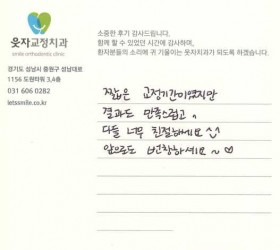 소중한 후기 감사드립니다.
함께 할 수 있었던 시간에 감사하며,
환자분들의 소리에 귀 기울이는 웃자치과가 되도록 하겠습니다.
웃자교정치과
smile orthodontic clinic
경기도 성남시 중원구 성남대로
1156 도원타워 3,4층
031 606 0282
letssmile.co.kr
짧은 교정기간이였지만
결과도 만족스럽고,
다들 너무 친절하세요^^
앞으로도 번창하세요~♡